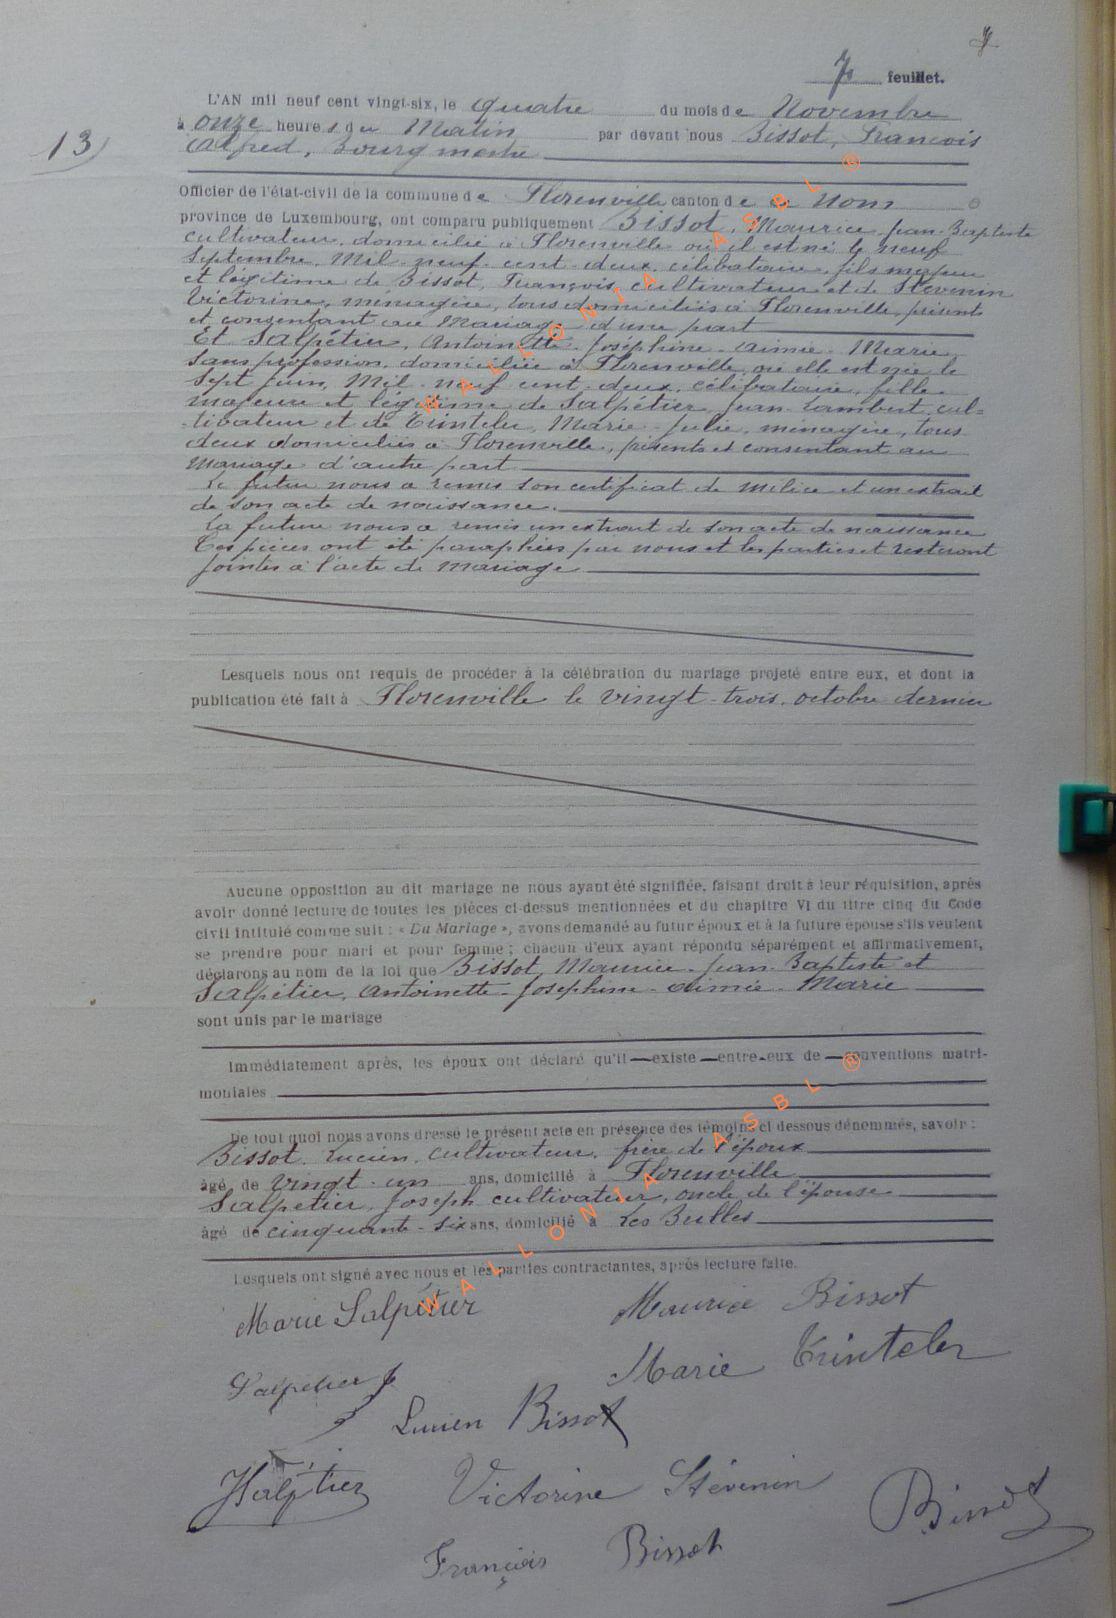 7e feuillet.
L'AN mil neuf cent vingt-six, le quatre du mois de Novembre
13) à onze heures du Matin par devant nous Bissot, François
Alfred, Bourgmestre
Officier de l'état-civil de la commune de Florenville canton de ce Nom
province de Luxembourg, ont comparu publiquement Bissot, Maurice-Jean-Baptiste
cultivateur, domicilié à Florenville où il est né le neuf
Septembre, Mil-neuf-cent-deux, célibataire, fils majeur
et légitime de Bissot, François, cultivateur et de Stévenin
Victorine, ménagère, tous domiciliés à Florenville, présents
et consentant au Mariage d'une part
Et Salpétier, Antoinette-Joséphine-Aimée-Marie
Sans profession, domiciliée à Florenville, où elle est née le
Sept Juin, Mil-neuf cent-deux, célibataire, fille
majeure et légitime de Salpétier, Jean-Lambert, cul=
tivateur et de Trinteler, Marie-Julie, ménagère, tous
deux domiciliés à Florenville, présents et consentant au
Mariage d'autre part
Le futur nous a remis son certificat de milice et un extrait
de son acte de naissance.
La future nous a remis un extrait de son acte de naissance
Ces pièces ont été paraphées par nous et les parties et resteront
jointes à l'acte de Mariage
Lesquels nous ont requis de procéder à la célébration du mariage projeté entre eux, et dont la
publication été fait à Florenville le vingt-trois octobre dernier
Aucune opposition au dit mariage ne nous ayant été signifiée, faisant droit à leur réquisition, après
avoir donné lecture de toutes les pièces ci-dessus mentionnées et du chapitre VI du titre cinq du Code
civil intitulé comme suit : « Du Mariage », avons demandé au futur époux et à la future épouse s'ils veulent
se prendre pour mari et pour femme ; chacun d'eux ayant répondu séparément et affirmativement,
déclarons au nom de la loi que Bissot, Maurice-Jean-Baptiste et
Salpétier, Antoinette-Joséphine-Aimée-Marie
sont unis par le mariage
Immédiatement après, les époux ont déclaré qu'il existe entre eux de conventions matri-
moniales
De tout quoi nous avons dressé le présent acte en présence des témoins ci dessous dénommés, savoir :
Bissot, Lucien, cultivateur, frère de l'époux
âgé de vingt-un ans, domicilié à Florenville
Salpétier, Joseph cultivateur, oncle de l'épouse
âgé de cinquante-six ans, domicilié à Les Bulles
Lesquels ont signé avec nous et les parties contractantes, après lecture faite.
Marie Salpétier Maurice Bissot
Salpétier J Marie Trinteler
Lucien Bissot
JSalpétier Victorine Stévenin Bissot
François Bissot
WALLONIA ASBL ®
WALLONIA ASBL ®